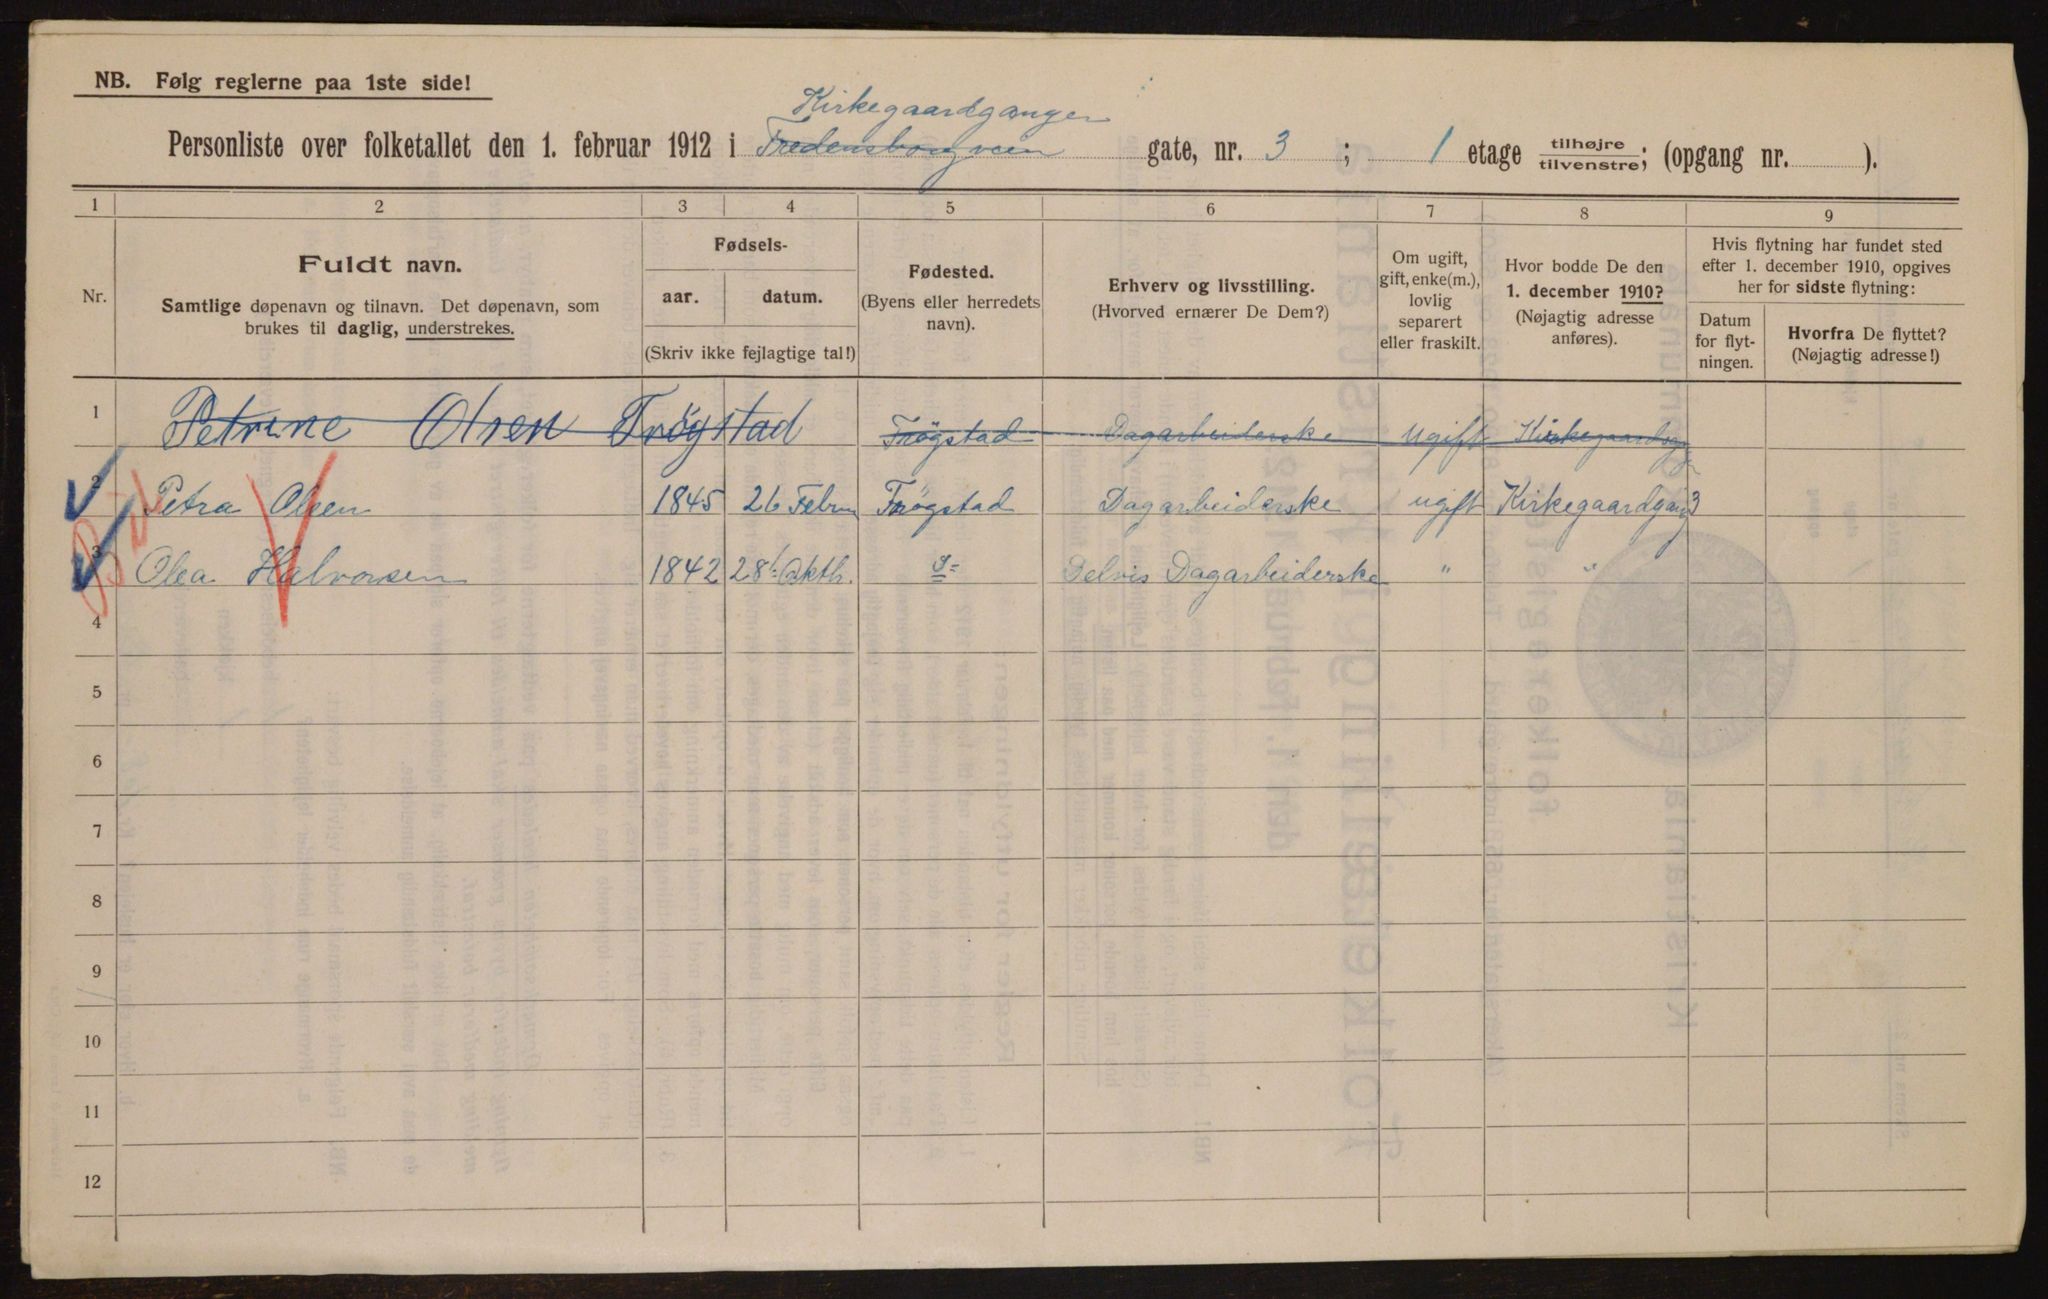 NB. Følg reglerne paa 1ste side!
Kirkegaardgangen
Personliste over folketallet den 1. februar 1912 i Fredensborgveien gate, nr. 3 ; 1 etage tilhøjre tilvenstre; (opgang nr. ).
1 2 3 4 5 6 7 8 9
Nr.
Fuldt navn.
Samtlige døpenavn og tilnavn. Det døpenavn, som
brukes til daglig, understrekes.
Fødsels-
aar. datum.
(Skriv ikke fejlagtige tal!)
Fødested.
(Byens eller herredets
navn).
Erhverv og livsstilling.
(Hvorved ernærer De Dem?)
Om ugift,
gift, enke(m.),
lovlig
separert
eller fraskilt.
Hvor bodde De den
1. december 1910?
(Nøjagtig adresse
anføres).
Hvis flytning har fundet sted
efter 1. december 1910, opgives
her for sidste flytning:
Datum
for flyt-
ningen.
Hvorfra De flyttet?
(Nøjagtig adresse!)
1 Petrine Olsen Trøgstad Trögstad Dagarbeiderske ugift Kirkegaardsg
2 Petra Olsen 1845 26 Febru Trögstad Dagarbeiderske ugift Kirkegaardgang 3
3 Olea Halvorsen 1842 28 Oktb. Delvis Dagarbeiderske " "
4
5
6
7
8
9
10
11
12